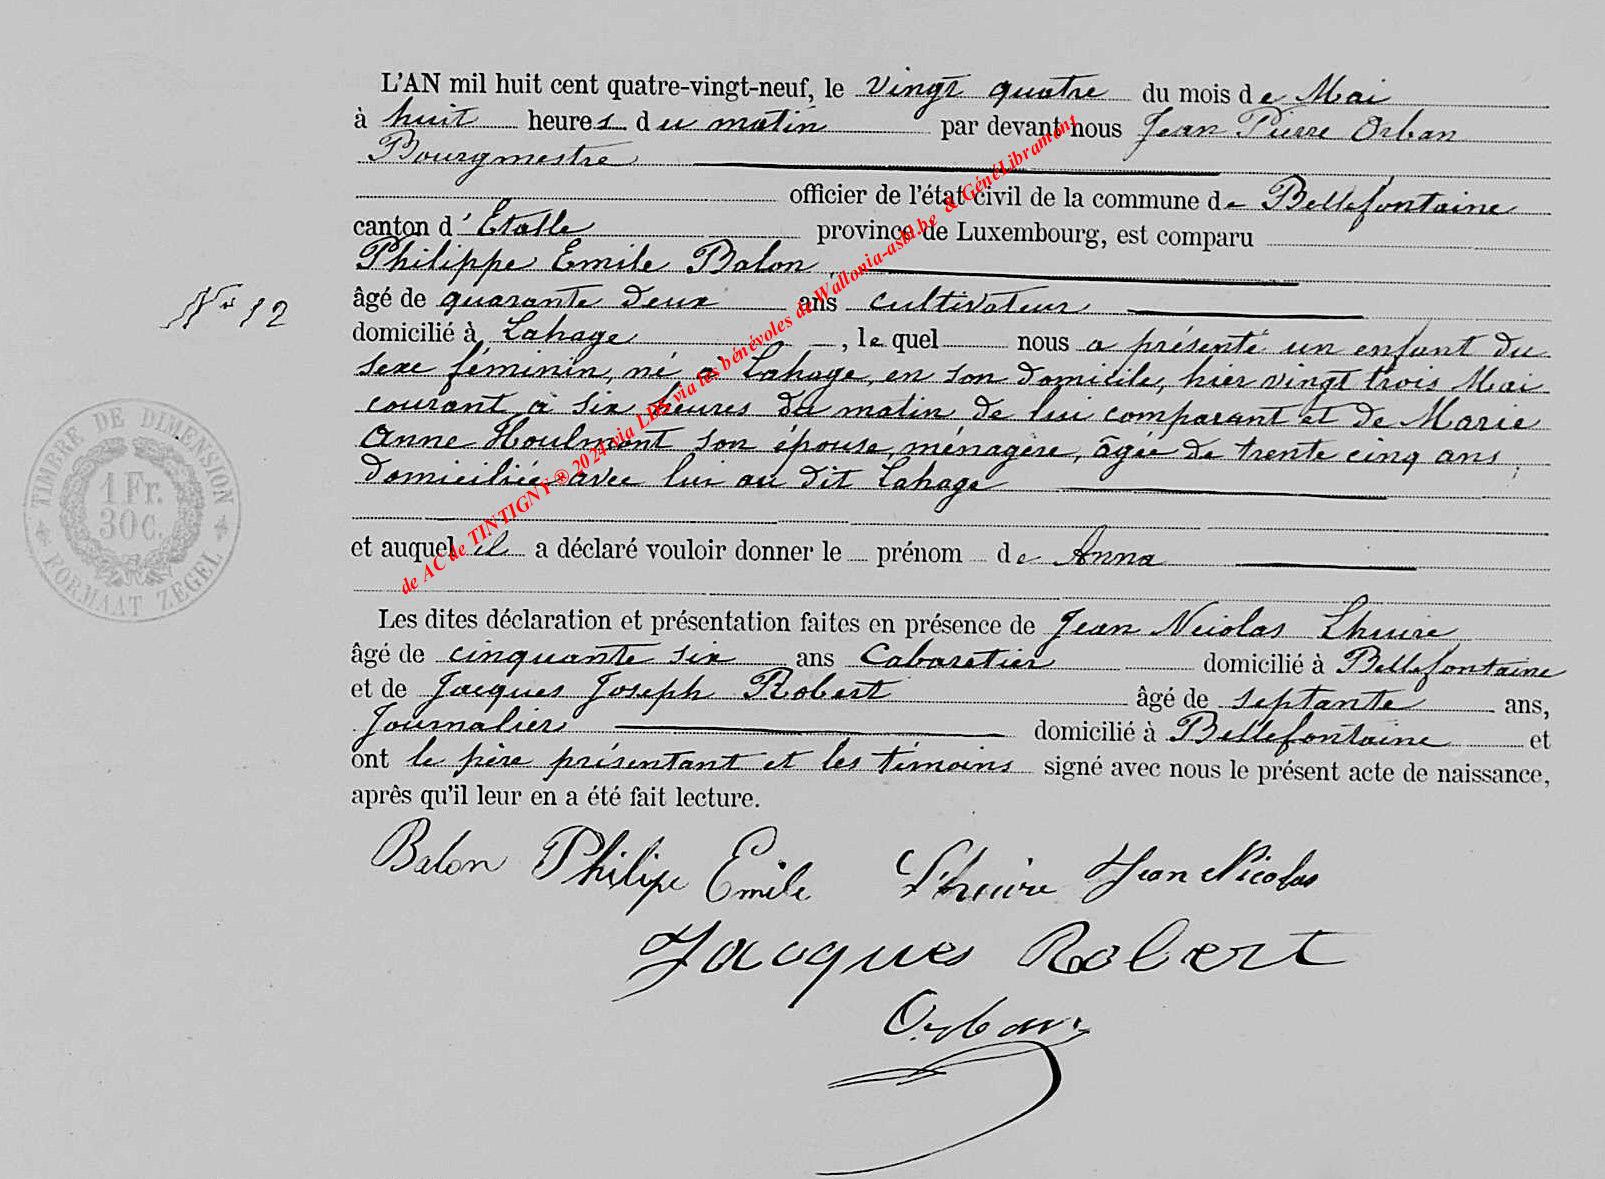 L'AN mil huit cent quatre-vingt-neuf, le vingt quatre du mois de Mai
à huit heures du matin par devant nous Jean Pierre Orban
Bourgmestre
officier de l'état civil de la commune de Bellefontaine
canton d'Etalle province de Luxembourg, est comparu
Philippe Emile Balon,
Nº 12
âgé de quarante deux ans cultivateur
domicilié à Lahage, le quel nous a présenté un enfant du
sexe féminin, né à Lahage, en son domicile, hier vingt trois Mai
courant à six heures du matin de lui comparant et de Marie
Anne Houlmont son épouse, ménagère, âgée de trente cinq ans,
domiciliée avec lui au dit Lahage
et auquel il a déclaré vouloir donner le prénom de Anna
Les dites déclaration et présentation faites en présence de Jean Nicolas Lhuire
âgé de cinquante six ans Cabaretier domicilié à Bellefontaine
et de Jacques Joseph Robert âgé de septante ans,
Journalier domicilié à Bellefontaine et
ont le père présentant et les témoins signé avec nous le présent acte de naissance,
après qu'il leur en a été fait lecture.
Balon Philipe Emile L'huire Jean Nicolas
Jacques Robert
Orban
TIMBRE DE DIMENSION
1 Fr.
30 C.
FORMAAT ZEGEL
de AC de TINTIGNY ® 2024 via LDS via les bénévoles de Wallonia-asbl.be & GénéLibramont